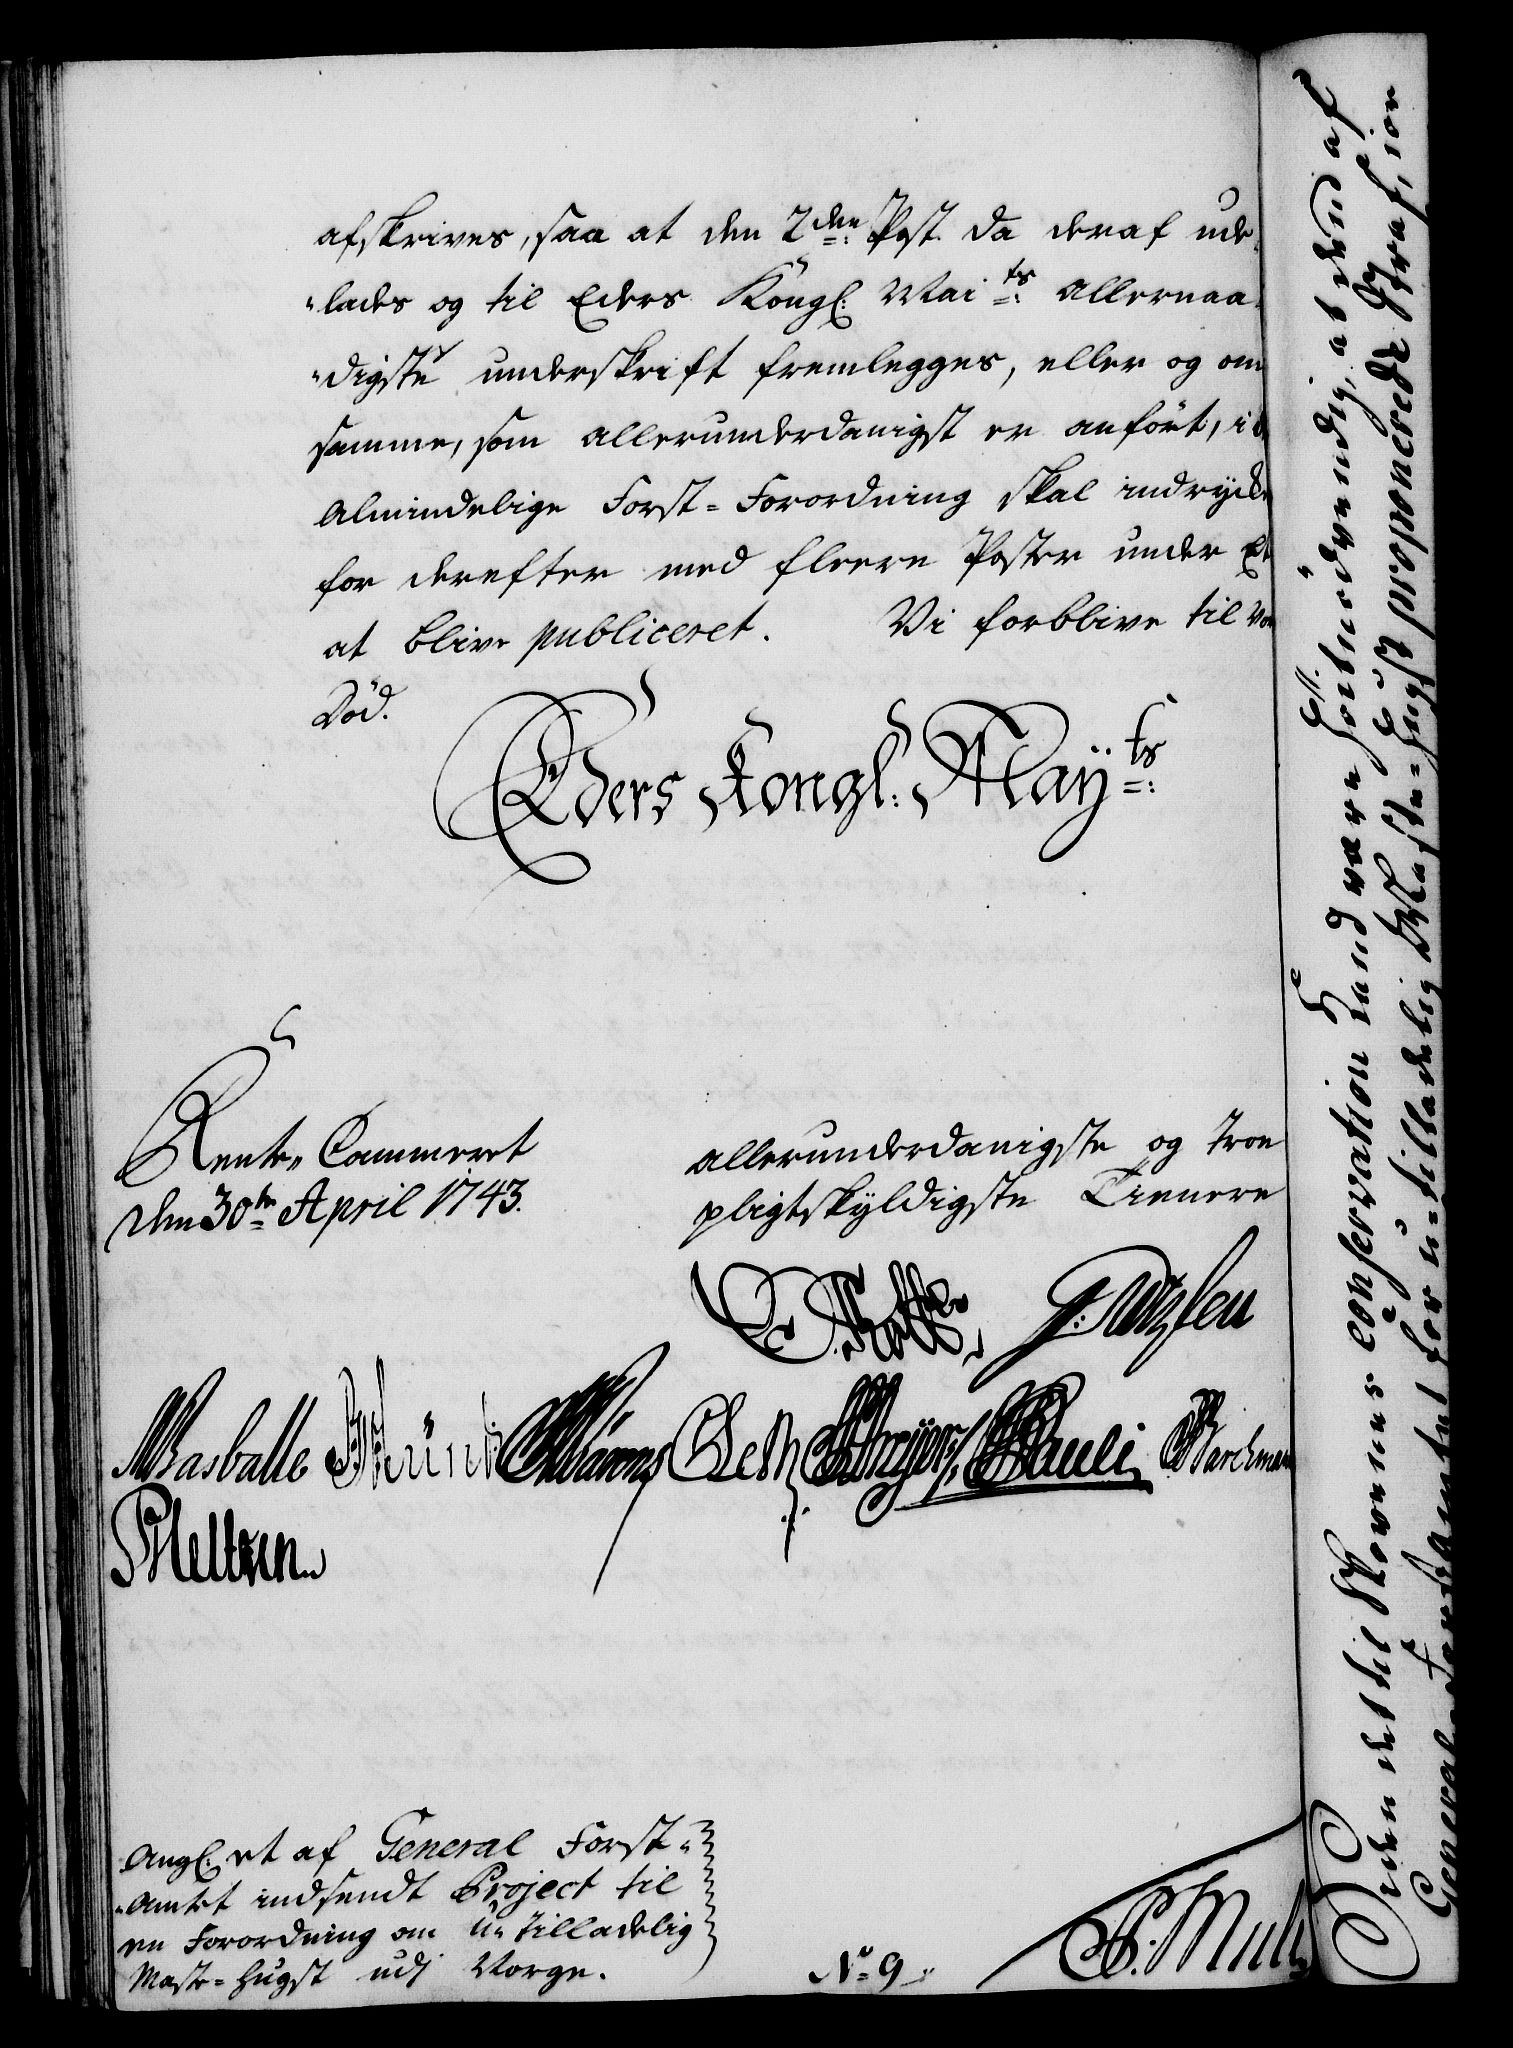 afskrives, saa at den 2den Post da deraf ude„
„lades og til Eders Kongl: Mai ts Allernaa„
„digste underskrift fremlegges, eller og om
samme, som allerunderdanigst er anført, i
Almindelige Forst=Forordning skal indrycke
for derefter med fleere Poster under Et
at blive publiceret. Vi forblive til vor
Død.
Eders Kongl: May ts
Rente=Cammeret
den 30te April 1743.
allerunderdanigste og troe
pligtskyldigste Tienere
Basballe
Pauli
Barchman
Angl: et af General Forst=
„Amtet indsendt Project til
en Forordning om U=tilladelig
Maste=Hugst udj Norge.
No 9
Siden det til Skovenes conservation kand være høitnødvendig, at dend af
General=Forst=Amtet for u=tilladelig Maste=Hugst proponerede Straf, ior